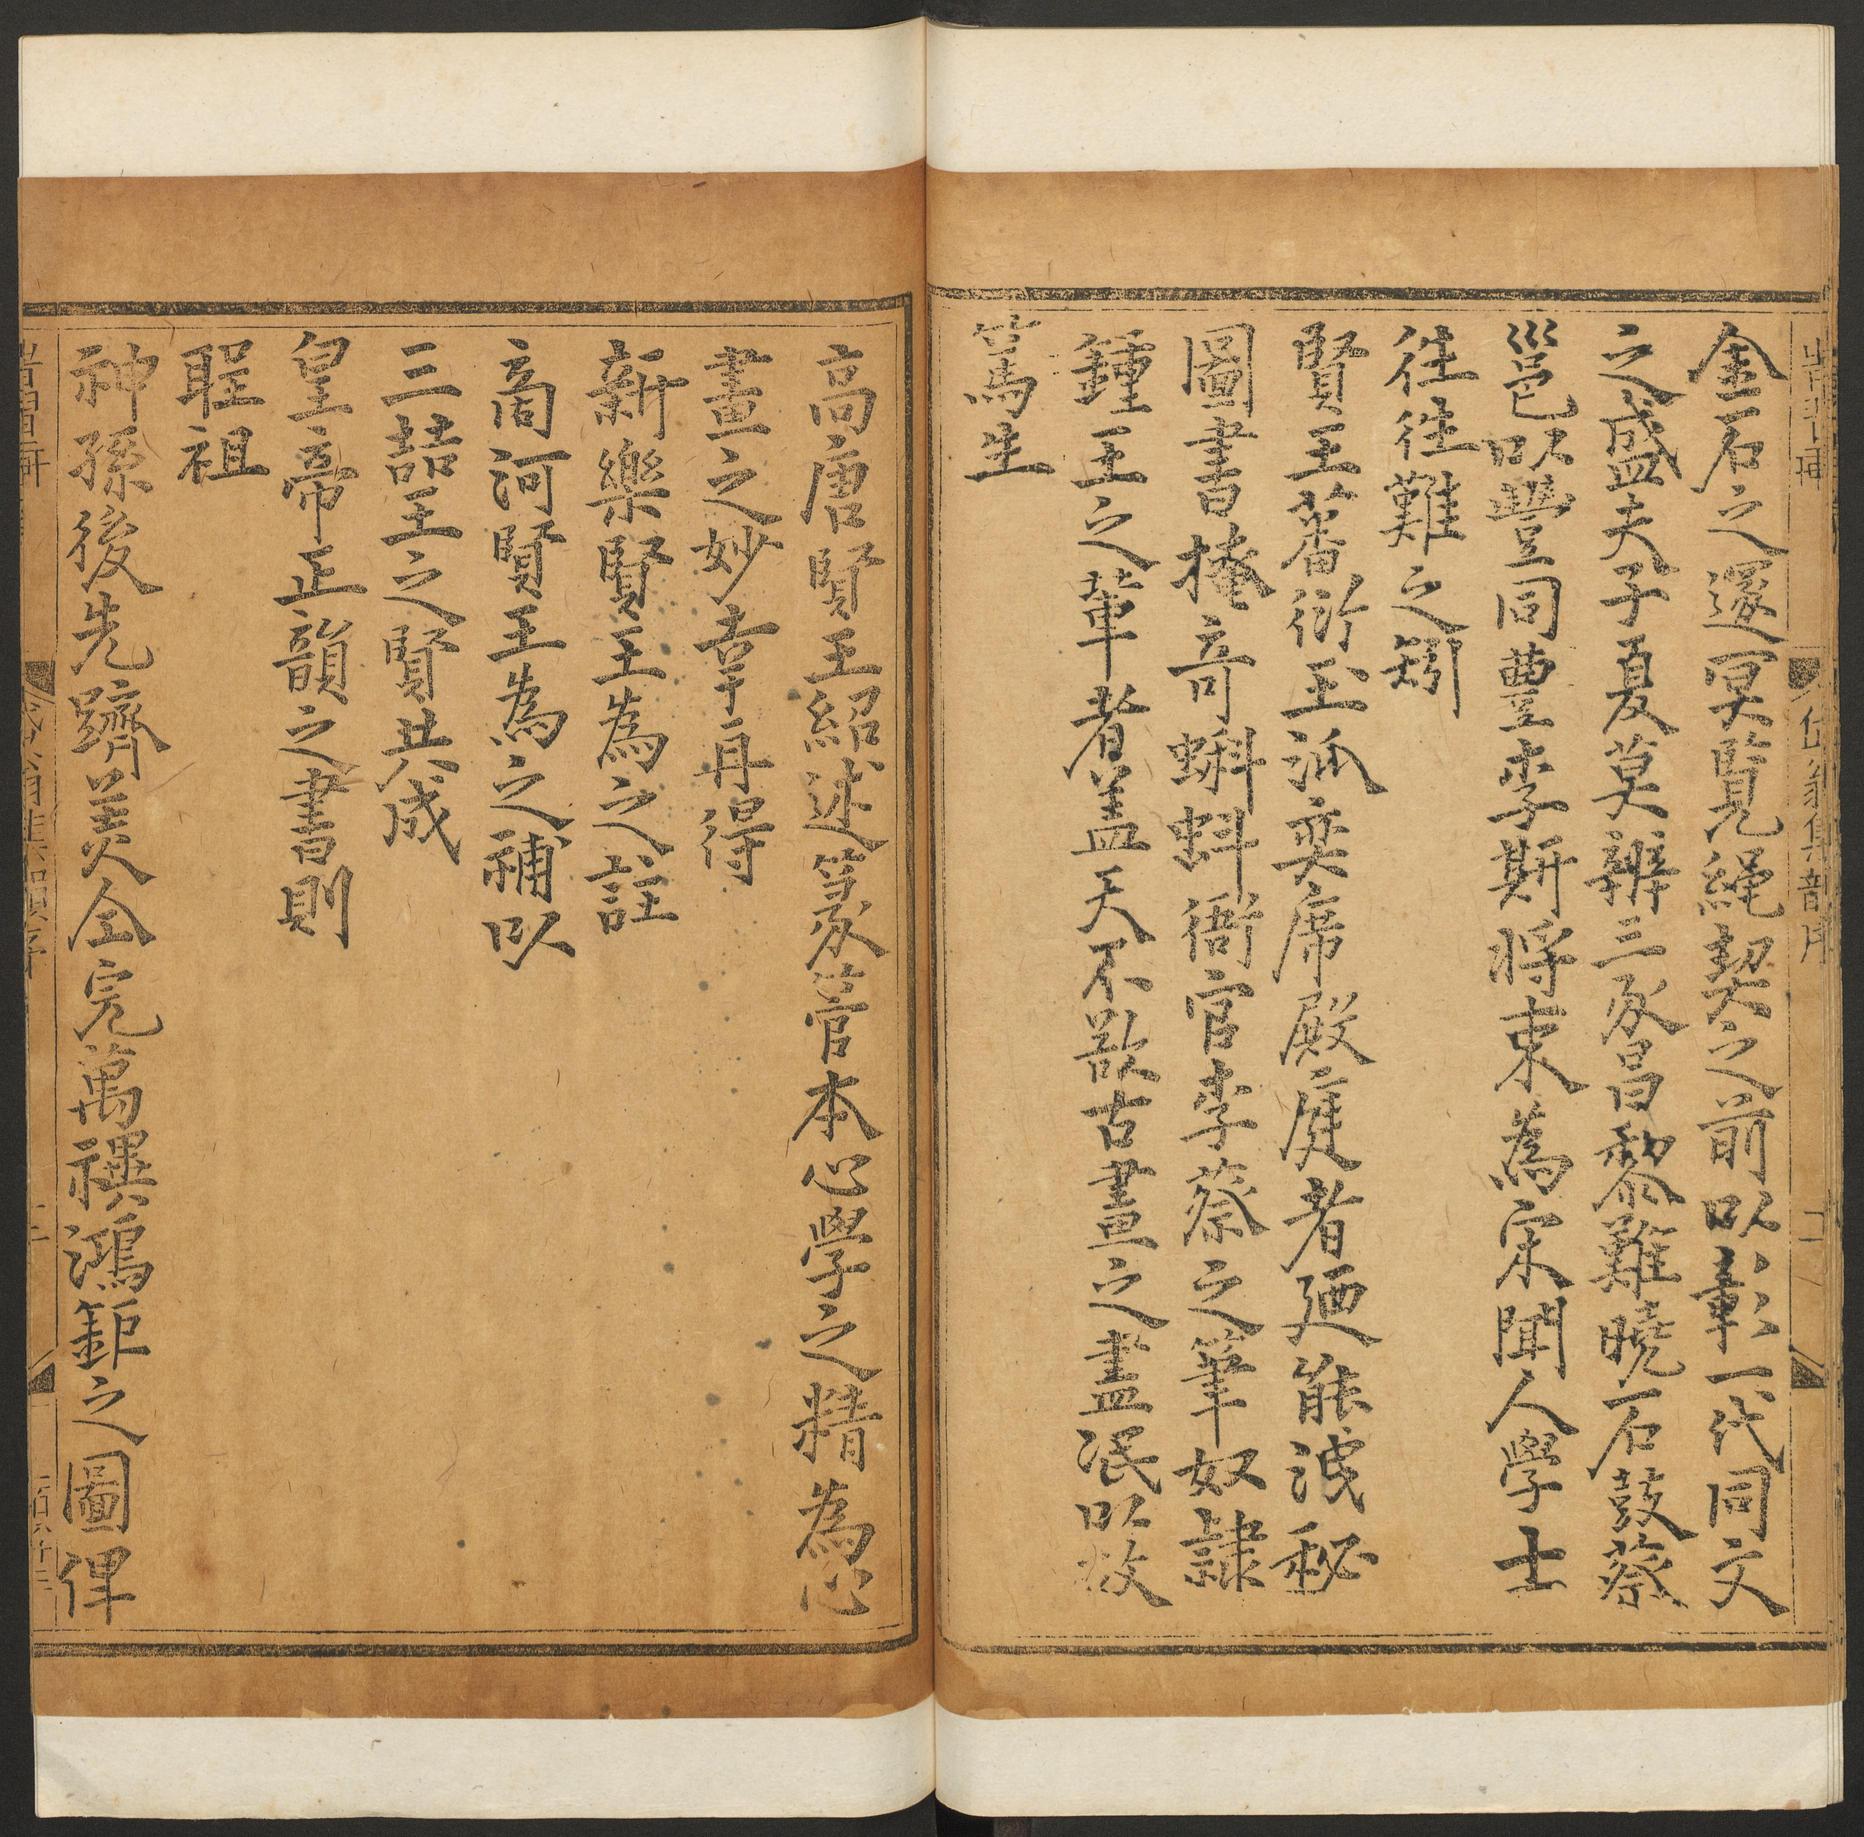 金石之邃冥覽繩契之前以彰一代同文
之盛夫子夏莫辨三豕昌黎難曉石鼓蔡
邕以豐同豊李斯將朿為宋聞人學士
往往難之矧
賢王蕃衍玉派奕席殿庭者廼能洩秘
圖書掩奇蝌蚪衙官李蔡之筆奴隸
鍾王之輩者盖天不歆古畫之盡泯以故
篤生
高唐賢王紹述篆籀本心學之精為心
畫之妙幸再得
新樂賢王為之註
商河賢王為之補以
三喆王之賢共成
皇帝正韻之書則
聖祖
神孫後先躋美全完萬禩鴻鉅之圖俾